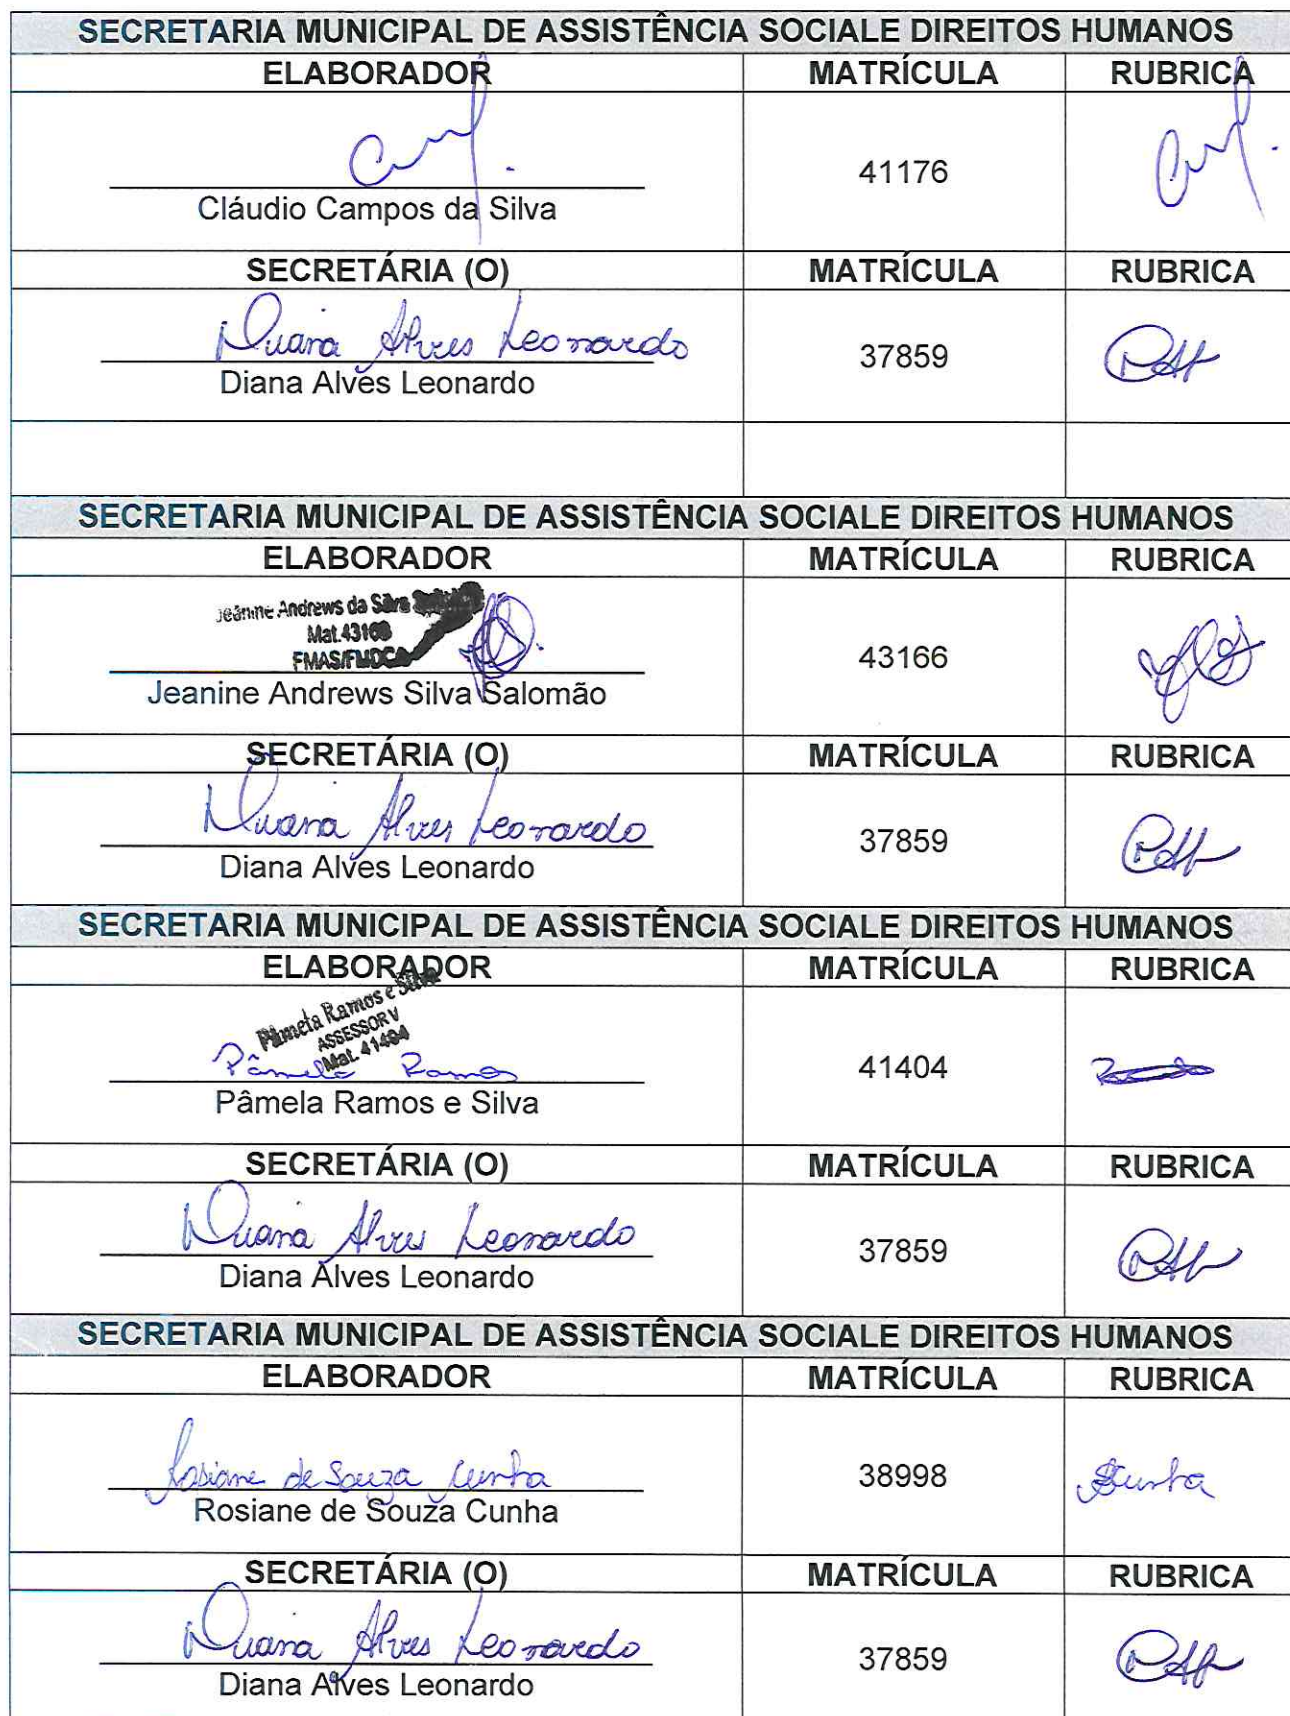 SECRETARIA MUNICIPAL DE ASSISTÊNCIA SOCIALE DIREITOS HUMANOS
ELABORADOR MATRÍCULA RUBRICA
41176
Cláudio Campos da Silva
SECRETÁRIA (O) MATRÍCULA RUBRICA
Diana Alves Leonardo
37859
Diana Alves Leonardo
SECRETARIA MUNICIPAL DE ASSISTÊNCIA SOCIALE DIREITOS HUMANOS
ELABORADOR MATRÍCULA RUBRICA
Jeanine Andrews da Silva
Mat.43166
FMAS/FMDCA
43166
Jeanine Andrews Silva Salomão
SECRETÁRIA (O) MATRÍCULA RUBRICA
Diana Alves Leonardo
37859
Diana Alves Leonardo
SECRETARIA MUNICIPAL DE ASSISTÊNCIA SOCIALE DIREITOS HUMANOS
ELABORADOR MATRÍCULA RUBRICA
Pâmela Ramos e Silva
ASSESSOR V
Mat. 41404
Pâmela Ramos
41404
Pâmela Ramos e Silva
SECRETÁRIA (O) MATRÍCULA RUBRICA
Diana Alves Leonardo
37859
Diana Alves Leonardo
SECRETARIA MUNICIPAL DE ASSISTÊNCIA SOCIALE DIREITOS HUMANOS
ELABORADOR MATRÍCULA RUBRICA
Rosiane de Souza Cunha
38998 RCunha
Rosiane de Souza Cunha
SECRETÁRIA (O) MATRÍCULA RUBRICA
Diana Alves Leonardo
37859
Diana Alves Leonardo